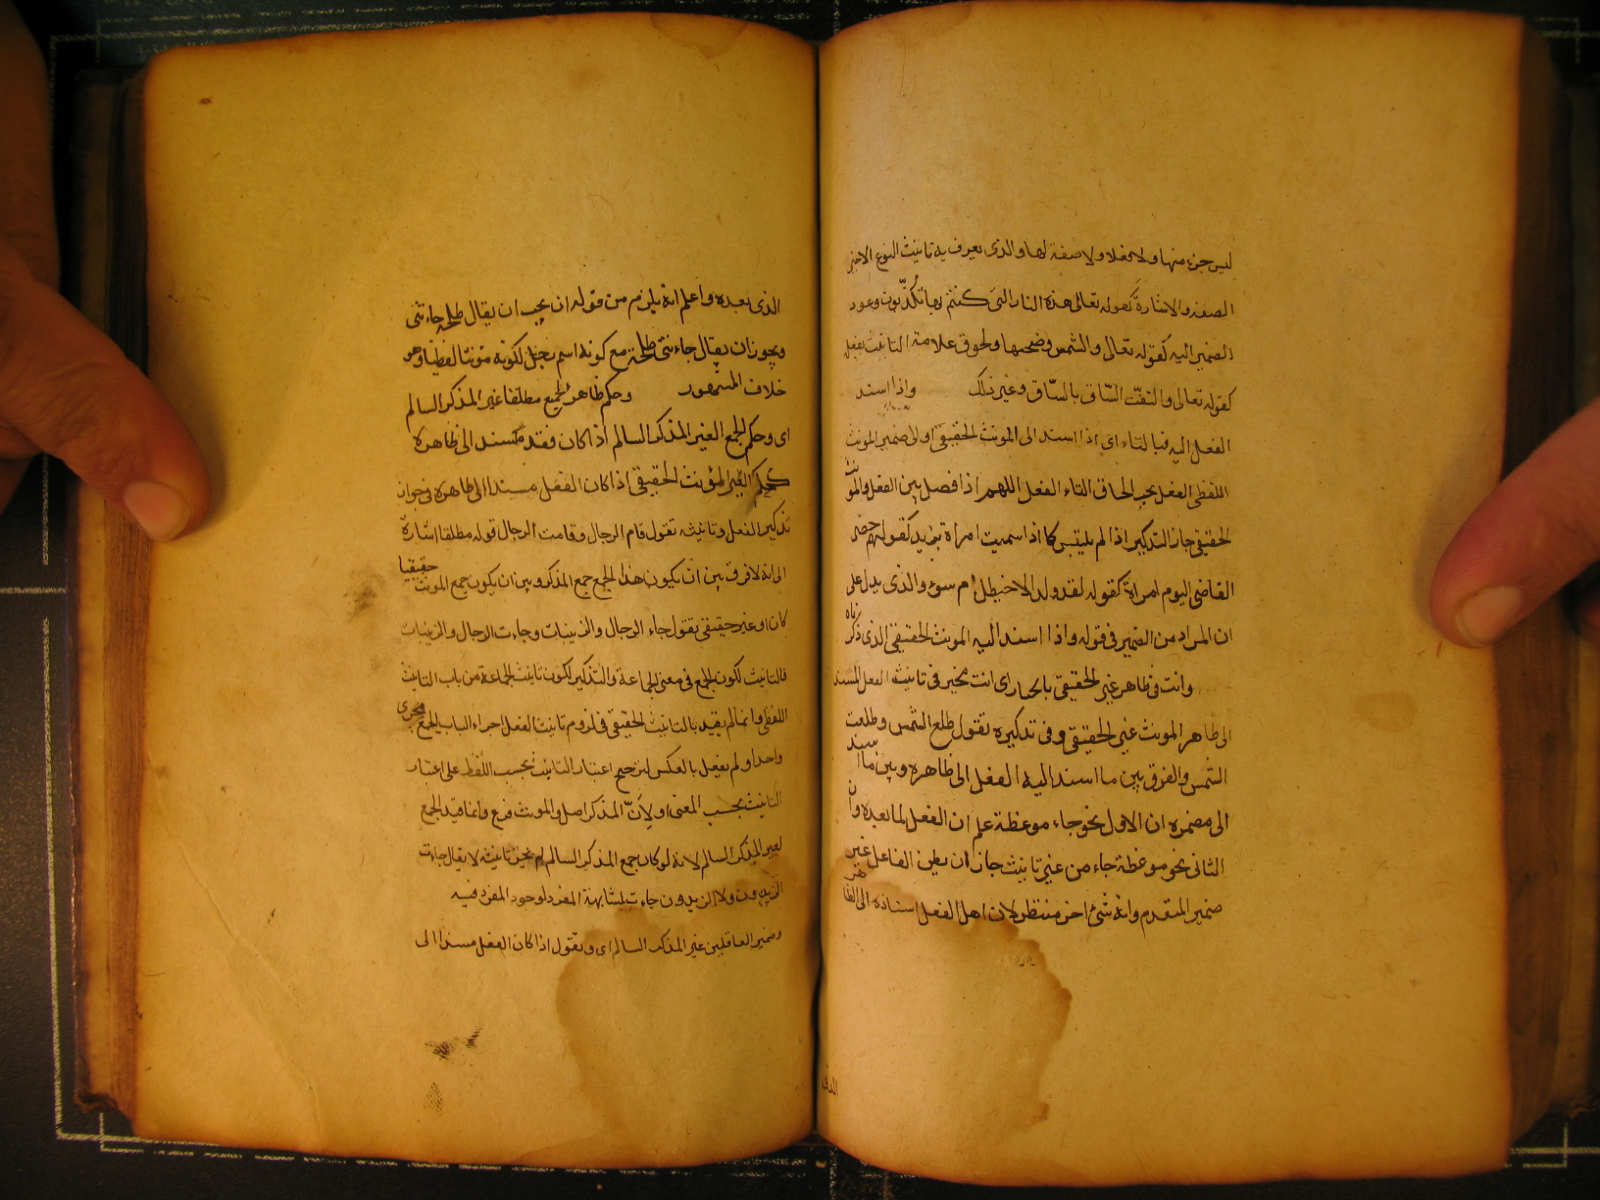 ليس جزء منها ولا فعلا ولا صفة لها والذى يعرف به تانيث النوع الاخير
الصفة والاشارة كقوله تعالى هذه النار التى كنتم بها تكذبون وعود
الضمير اليه كقوله تعالى والشمس وضحيها ولحوق علامة التانيث بفعل
كقوله تعالى والتفت الساق بالساق وغير ذلك واذا اسند
الفعل اليه فبالتاء اى اذا اسند الى المونث الحقيقى او الى ضمير المونث
اللفظى الفعل يجب الحاق التاء الفعل اللهم اذا فصل بين الفعل والمونث
الحقيقى جاز التذكير اذا لم يلتبس كما اذا سميت امراة بزيد كقولهم حضر
القاضى اليوم امراة كقوله لقد ولد الاخيطل ام سوء والذى يدل على
ان المراد من الضمير فى قوله واذا اسند اليه المونث الحقيقى الذى ذكرناه
وانت فى ظاهر غير الحقيقى بالخيار اى انت مخير فى تانيث الفعل المسند
الى ظاهر المونث غير الحقيقى وفى تذكيره تقول طلع الشمس وطلعت
الشمس والفرق بين ما اسند اليه الفعل الى ظاهره وبين ما اسند
الى مضمره ان الاول نحو جاء موعظة علم ان الفعل لما بعده وان
الثانى نحو موعظة جاء من غير تانيث جاز ان يظن الفاعل غير
ضمير المتقدم وانه شئ اخر منتظر لان اصل الفعل اسناده الى الظاهر
الذى
الذى بعده واعلم انه يلزم من قوله ان يجب ان يقال طلحة جاءتنى
ويجوز ان يقال جاءتنى طلحة مع كونه اسم رجل لكونه مونثا لفظيا وهو
خلاف المشهور وحكم ظاهر الجمع مطلقا غير المذكر السالم
اى وحكم الجمع الغير المذكر السالم اذا كان فقد مسند الى ظاهره
كحكم الغير المؤنث الحقيقى اذا كان الفعل مسندا الى ظاهره فى جواز
تذكير الفعل وتانيثه تقول قام الرجال وقامت الرجال قوله مطلقا اشارة
الى انه لا فرق بين ان يكون هذا الجمع جمع المذكر وبين ان يكون جمع المونث حقيقيا
كان او غير حقيقى تقول جاء الرجال والزينبات وجاءت الرجال والزينبات
فالتانيث لكون الجمع فى معنى الجماعة والتذكير لكون تانيث الجماعة من باب التانيث
اللفظى وانما لم يقيد بالتانيث الحقيقى فى لزوم تانيث الفعل اجراء الباب الجمع مجرى
واحدا ولم يفعل بالعكس لترجيح اعتبار التانيث بحسب اللفظ على اعتبار
التانيث بحسب المعنى او لان المذكر اصل والمونث فرع وانما قيد الجمع
لغير المذكر السالم لانه لو كان جمع المذكر السالم لم يجز تانيثه لا يقال جاءت
الزيدون ولا الزيدون جاءت لمشابهة المفرد لوجود المفرد فيه
وضمير العاقلين غير المذكر السالم اى وتقول اذا كان الفعل مسندا الى